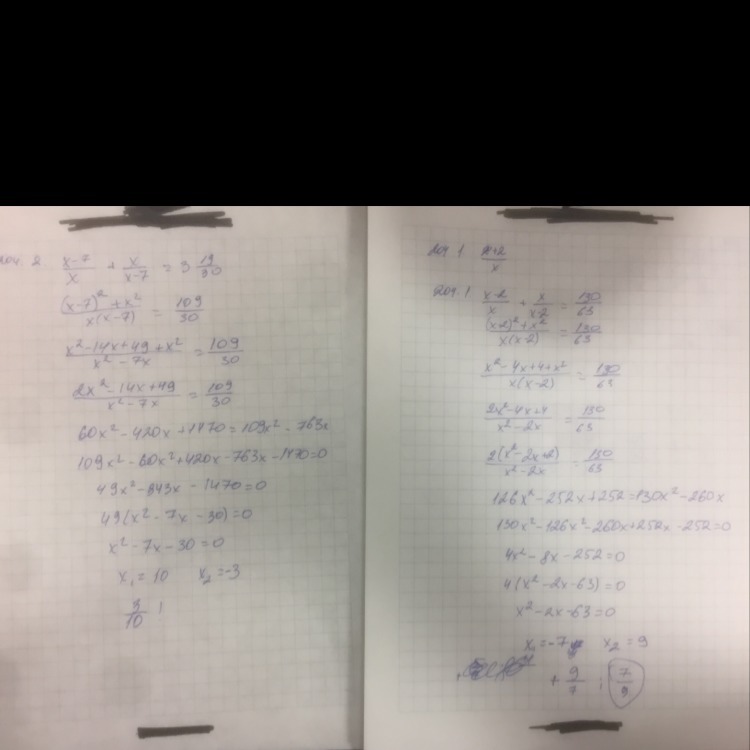 2
x-7/x + x/x-7 = 3 19/30
(x-7)²+x²/x(x-7) = 109/30
x²-14x+49+x²/x²-7x = 109/30
2x²-14x+49/x²-7x = 109/30
60x²-420x+1470=109x²-763x
109x²-60x²+420x-763x-1470=0
49x²-343x-1470=0
49(x²-7x-30)=0
x²-7x-30=0
x₁=10 x₂=-3
3/10
1
x+2/x
1
x-2/x + x/x-2 = 130/63
(x-2)²+x²/x(x-2) = 130/63
x²-4x+4+x²/x(x-2) = 130/63
2x²-4x+4/x²-2x = 130/63
2(x²-2x+2)/x²-2x = 130/63
126x²-252x+252=130x²-260x
130x²-126x²-260x+252x-252=0
4x²-8x-252=0
4(x²-2x-63)=0
x²-2x-63=0
x₁=-7 x₂=9
+ 9/7 ; 7/9